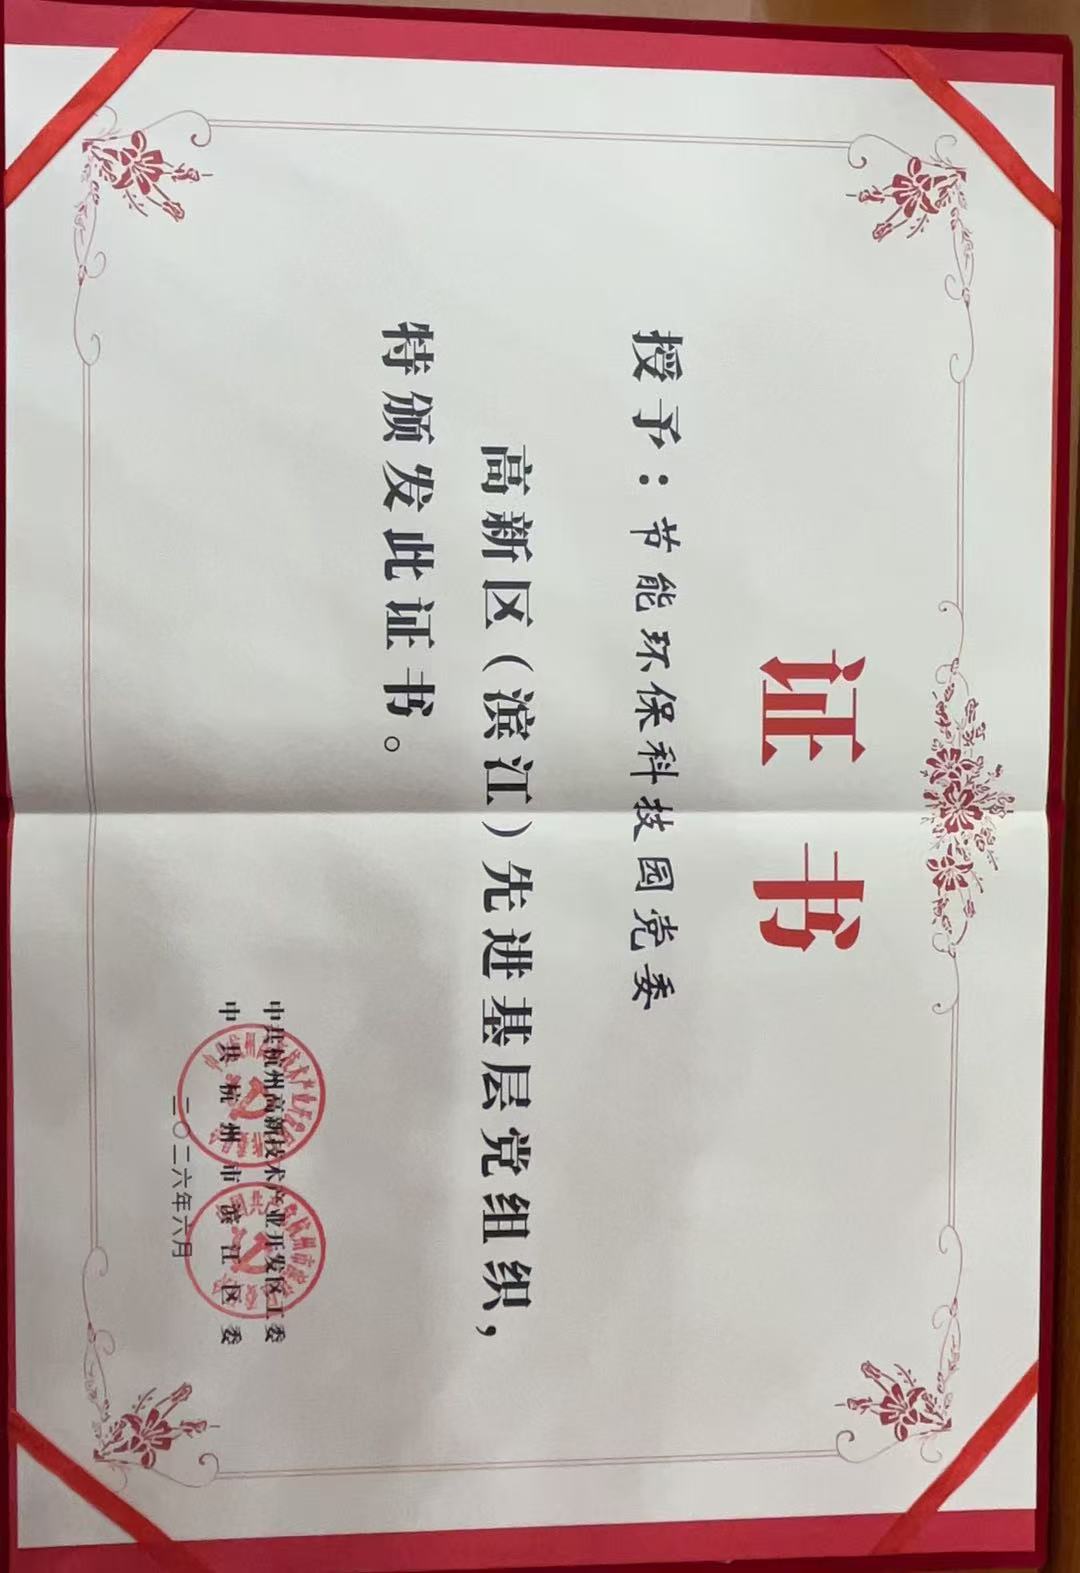 证书
授予：节能环保科技园党委
高新区（滨江）先进基层党组织，
特颁发此证书。
中共杭州高新技术产业开发区工委
中共杭州市滨江区委
二〇二六年六月